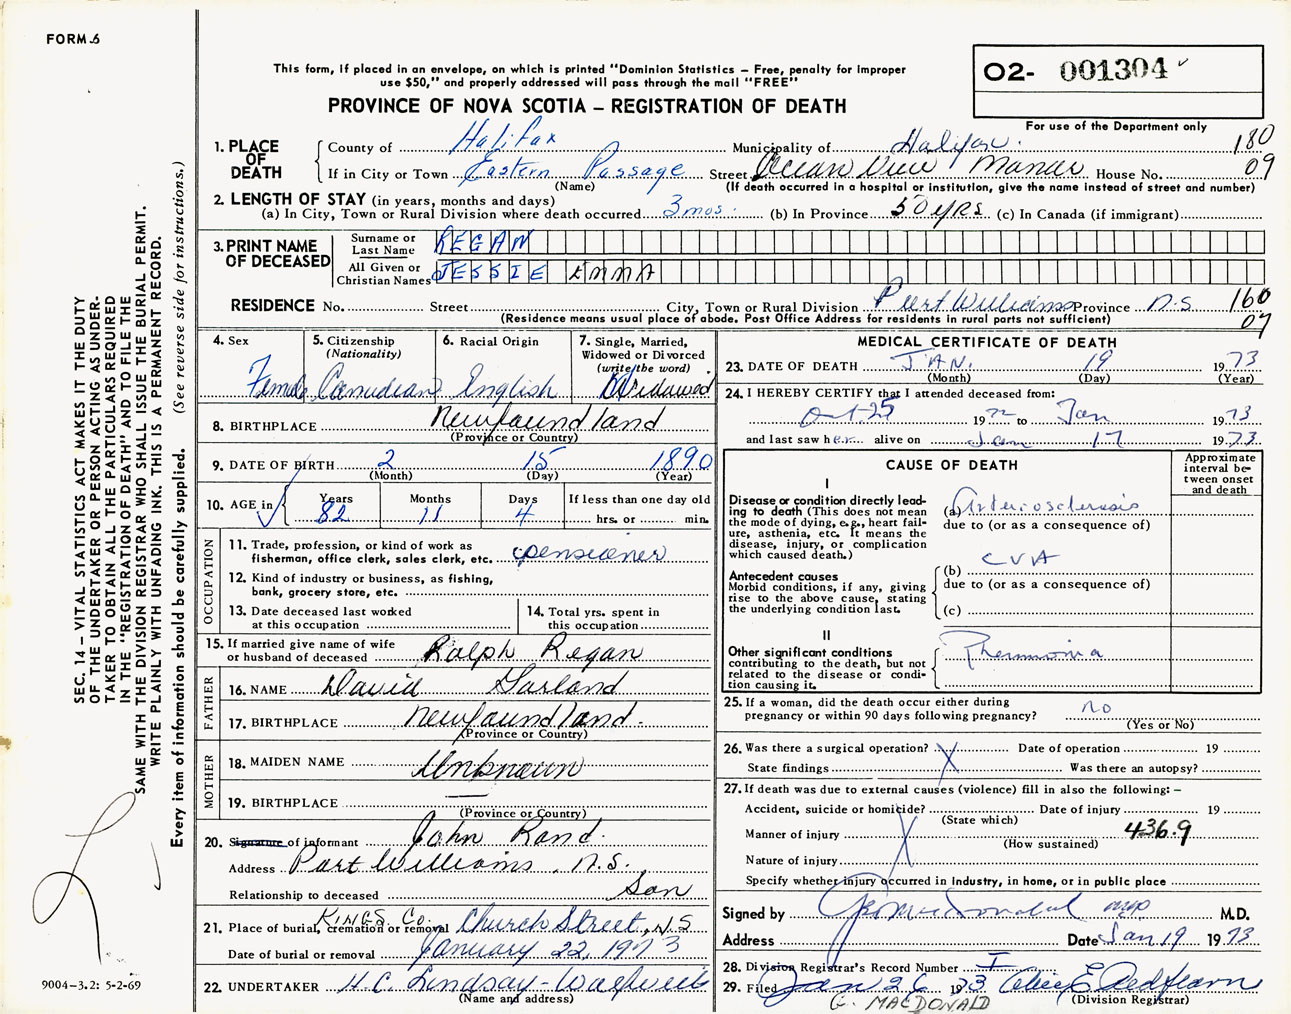 FORM 6
O2- 001304
This form, if placed in an envelope, on which is printed "Dominion Statistics – Free, penalty for improper
use $50," and properly addressed will pass through the mail "FREE"
PROVINCE OF NOVA SCOTIA – REGISTRATION OF DEATH
For use of the Department only
1. PLACE OF DEATH
County of Halifax Municipality of Halifax. 180
If in City or Town Eastern Passage Street Ocean View Manor House No. 09
(Name) (If death occurred in a hospital or institution, give the name instead of street and number)
2. LENGTH OF STAY (in years, months and days)
(a) In City, Town or Rural Division where death occurred 3 mos. (b) In Province 50 yrs (c) In Canada (if immigrant)
3. PRINT NAME OF DECEASED
Surname or Last Name REGAN
All Given or Christian Names JESSIE EMMA
RESIDENCE No. Street City, Town or Rural Division Port Williams Province N.S 160
(Residence means usual place of abode. Post Office Address for residents in rural parts not sufficient) 07
4. Sex Female
5. Citizenship (Nationality) Canadian
6. Racial Origin English
7. Single, Married, Widowed or Divorced (write the word) Widowed
8. BIRTHPLACE Newfoundland
(Province or Country)
9. DATE OF BIRTH 2 15 1890
(Month) (Day) (Year)
10. AGE in Years 82 Months 11 Days 4 If less than one day old hrs. or min.
OCCUPATION
11. Trade, profession, or kind of work as
fisherman, office clerk, sales clerk, etc. pensioner
12. Kind of industry or business, as fishing,
bank, grocery store, etc.
13. Date deceased last worked at this occupation
14. Total yrs. spent in this occupation
15. If married give name of wife
or husband of deceased Ralph Regan
FATHER
16. NAME David Garland
17. BIRTHPLACE Newfoundland.
(Province or Country)
MOTHER
18. MAIDEN NAME Unknown
19. BIRTHPLACE —
(Province or Country)
20. Signature of informant John Rand.
Address Port Williams, N.S.
Relationship to deceased Son
21. Place of burial, cremation or removal KINGS Co. Church Street, N.S
Date of burial or removal January 22, 1973
22. UNDERTAKER H.C. Lindsay
(Name and address)
MEDICAL CERTIFICATE OF DEATH
23. DATE OF DEATH JAN. 19 1973
(Month) (Day) (Year)
24. I HEREBY CERTIFY that I attended deceased from:
Oct 25 1972 to Jan 1973
and last saw her alive on Jan 17 1973
CAUSE OF DEATH
Approximate interval between onset and death
I
Disease or condition directly leading to death (This does not mean the mode of dying, e.g., heart failure, asthenia, etc. It means the disease, injury, or complication which caused death.)
(a) Arteriosclerosis
due to (or as a consequence of)
Antecedent causes
Morbid conditions, if any, giving rise to the above cause, stating the underlying condition last.
(b) CVA
due to (or as a consequence of)
(c)
II
Other significant conditions contributing to the death, but not related to the disease or condition causing it.
Pneumonia
25. If a woman, did the death occur either during
pregnancy or within 90 days following pregnancy? no
(Yes or No)
26. Was there a surgical operation? X Date of operation 19
State findings Was there an autopsy?
27. If death was due to external causes (violence) fill in also the following: –
Accident, suicide or homicide? Date of injury 19
(State which)
Manner of injury 436.9
(How sustained)
Nature of injury
Specify whether injury occurred in industry, in home, or in public place
Signed by M.D.
Address Date Jan 19 1973
28. Division Registrar's Record Number
29. Filed Jan 26 1973
(Division Registrar)
G. MACDONALD
SEC. 14 – VITAL STATISTICS ACT MAKES IT THE DUTY
OF THE UNDERTAKER OR PERSON ACTING AS UNDER-
TAKER TO OBTAIN ALL THE PARTICULARS REQUIRED
IN THE "REGISTRATION OF DEATH" AND TO FILE THE
SAME WITH THE DIVISION REGISTRAR WHO SHALL ISSUE THE BURIAL PERMIT.
WRITE PLAINLY WITH UNFADING INK. THIS IS A PERMANENT RECORD.
Every item of information should be carefully supplied. (See reverse side for instructions.)
9004-3.2: 5-2-69